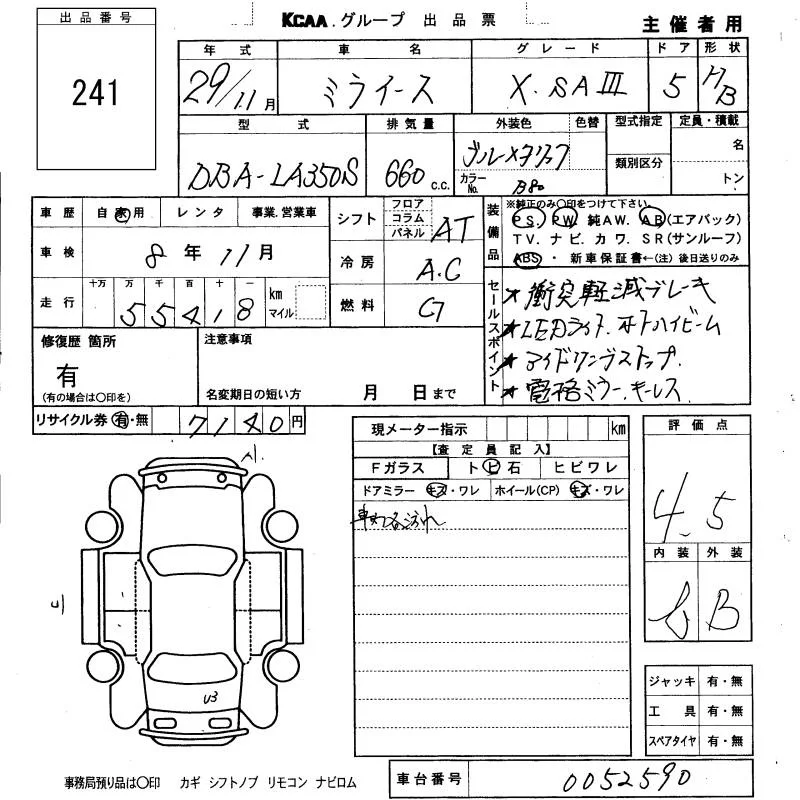 出品番号
241
KCAA.グループ 出品票
主催者用
年式 車名 グレード ドア 形状
29/11月 ミライース X.SAIII 5 H/B
型式 排気量 外装色 色替 型式指定 定員・積載
DBA-LA350S 660c.c. ブルーメタリック
カラーNo. B80
類別区分
名
トン
車歴 自家用 レンタ 事業.営業車
車検 8年11月
走行 十万 万 千 百 十 一
55418 km マイル
シフト フロア コラム パネル AT
冷房 A.C
燃料 G
装備品
※純正のみ〇印をつけて下さい。
PS. PW. 純AW. AB(エアバック)
TV. ナビ. カワ. SR(サンルーフ)
ABS・新車保証書←(注)後日送りのみ
セールスポイント
★衝突軽減ブレーキ
★LEDライト.オートハイビーム
★アイドリングストップ.
★電格ミラー.キーレス
修復歴 箇所
有
(有の場合は〇印を)
注意事項
名変期日の短い方 月 日まで
リサイクル券 有・無 7140円
現メーター指示 km
【査定員記入】
Fガラス トビ石 ヒビワレ
ドアミラー キズ・ワレ ホイール(CP) キズ・ワレ
評価点
4.5
内装 外装
B
U3
ジャッキ 有・無
工具 有・無
スペアタイヤ 有・無
事務局預り品は〇印 カギ シフトノブ リモコン ナビロム
車台番号 0052590